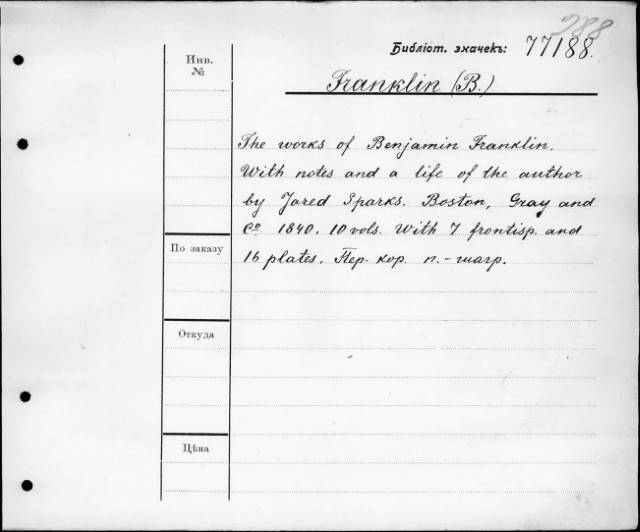 288
Библiот. значекъ: 77188.
Инв.
№
Franklin (B.)
The works of Benjamin Franklin.
With notes and a life of the author
by Jared Sparks. Boston, Gray and
Co 1840. 10 vols. With 7 frontisp. and
16 plates. Пер. кор. п.-шагр.
По заказу
Откуда
Цѣна